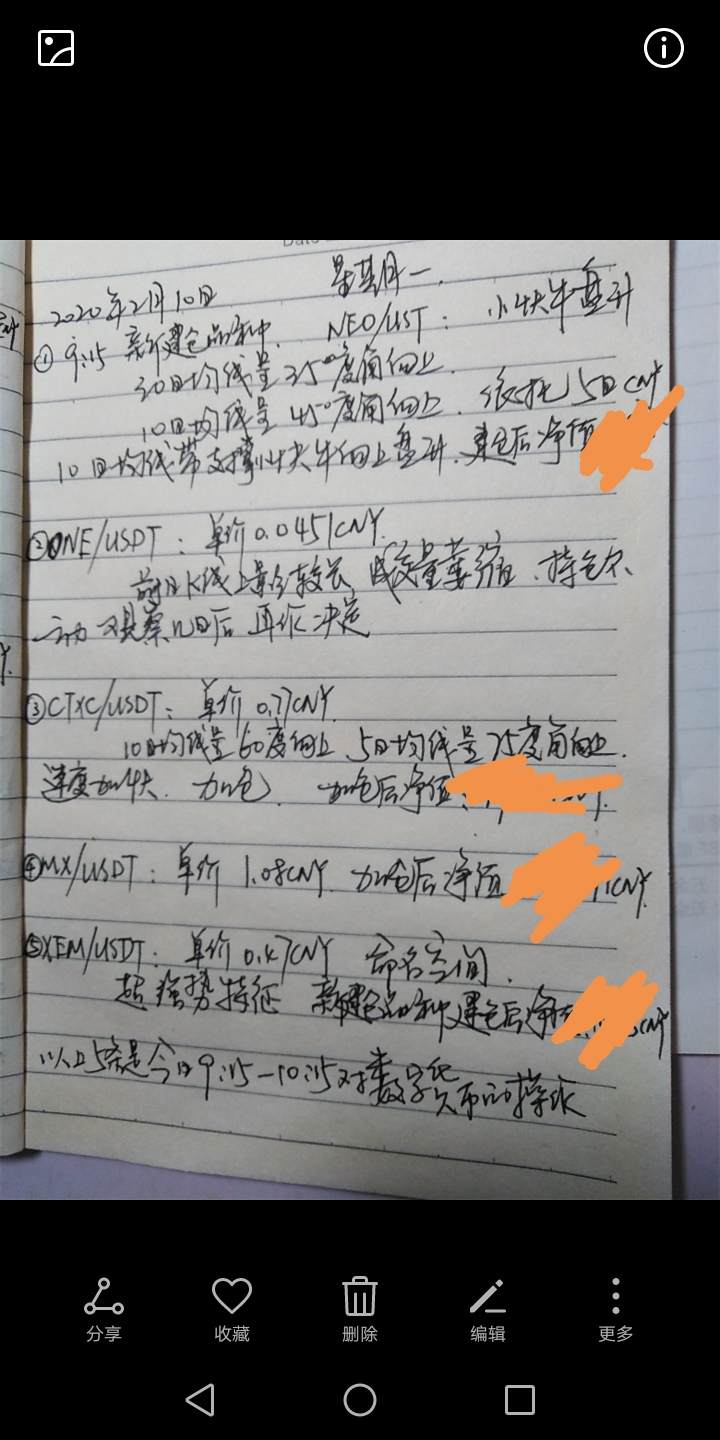 2020年2月10日 星期一.
① 9:15 新建仓品种. NEO/UST: 小快牛盘升
30日均线呈35°度角向上.
10日均线呈45°度角向上. 依托15日CNY
10日均线带支撑小快牛向上盘升. 建仓后净值
②ONE/USDT: 单价0.0451CNY.
前日K线上影线较长, 成交量萎缩. 持仓不
动 观察几日后 再作决定
③CTXC/USDT: 单价 0.77CNY.
10日均线呈60度向上 5日均线呈75度角向上.
速度加快. 加仓. 加仓后净值:
④MX/USDT: 单价 1.08CNY. 加仓后净值 CNY.
⑤XEM/USDT: 单价 0.47CNY 命名空间.
超强势特征 新建仓品种,建仓后净值 CNY
以上5条是今日9:15-10:15对数字货币的操作
分享 收藏 删除 编辑 更多